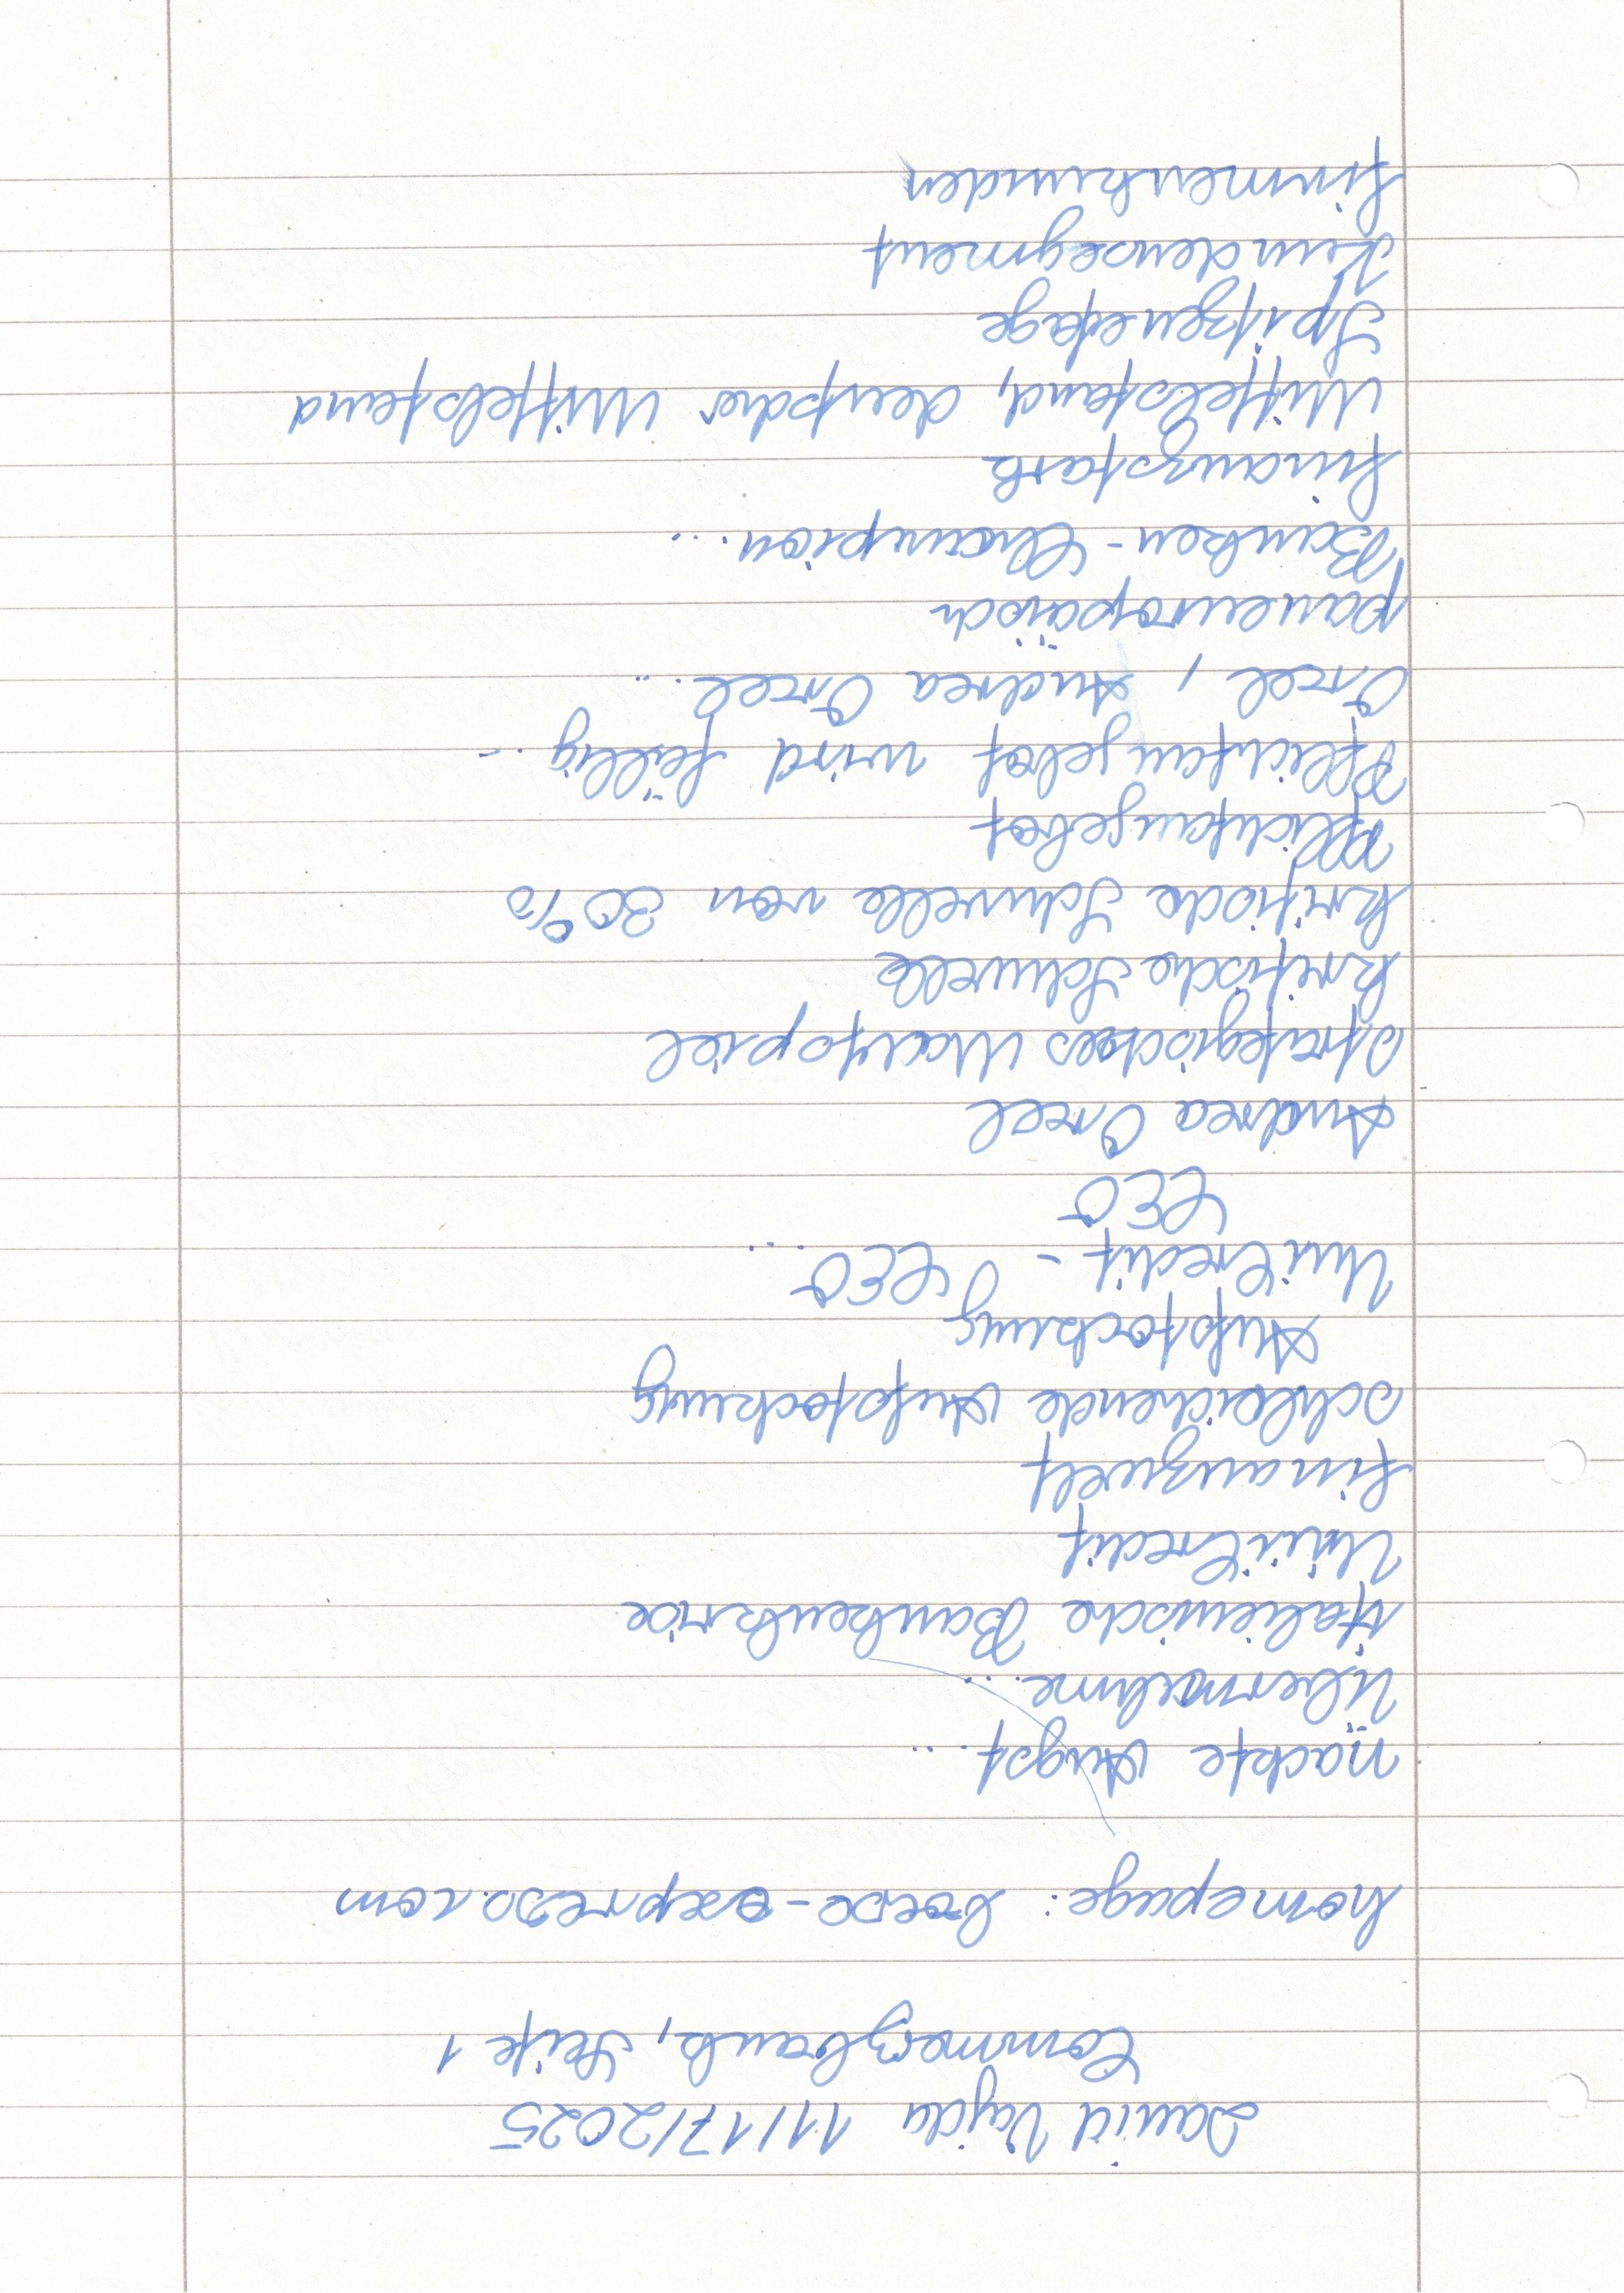 David Vajda 11/17/2025
Commerzbank, Seite 1
homepage: boesoexpreso.com
nackte Angst...
Übernahme...
Italienische Bankenkrise
UniCredit
Finanzwelt
schleichende Aufstockung
Aufstockung
UniCredit - CEO
CEO ...
Andrea Orcel
strategisches Machtspiel
kritische Schwelle
kritische Schwelle von 30%
Pflichtangebot
Pflichtangebot wird fällig...
Orcel, Andrea Orcel...
paneuropäisch
Banken-Champion...
finanzstark
Mittelstand, deutscher Mittelstand
Spitzenetage
Kundensegment
Firmenkunden